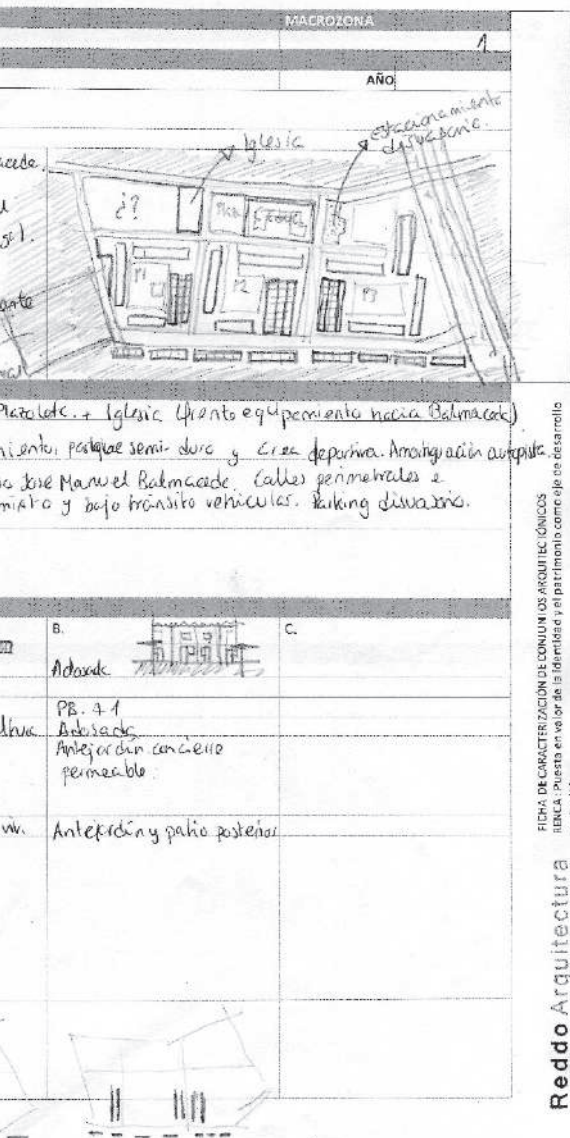 MACROZONA
1
AÑO
Iglesia
estacionamiento
disuasorio.
¿?
P1
P2
P3
Plazoleta. + Iglesia (frente equipamiento hacia Balmaceda)
parque semi-duro y área deportiva. Amortiguación autopista.
José Manuel Balmaceda. Calles perimetrales e
mixto y bajo tránsito vehicular. Parking disuasorio.
B.
C.
Adosada
PB. + 1
Adosada
Antejardín con cierre
permeable.
viv.
Antejardín y patio posterior
FICHA DE CARACTERIZACIÓN DE CONJUNTOS ARQUITECTÓNICOS
RENCA: Puesta en valor de la identidad y el patrimonio como eje de desarrollo
Reddo Arquitectura